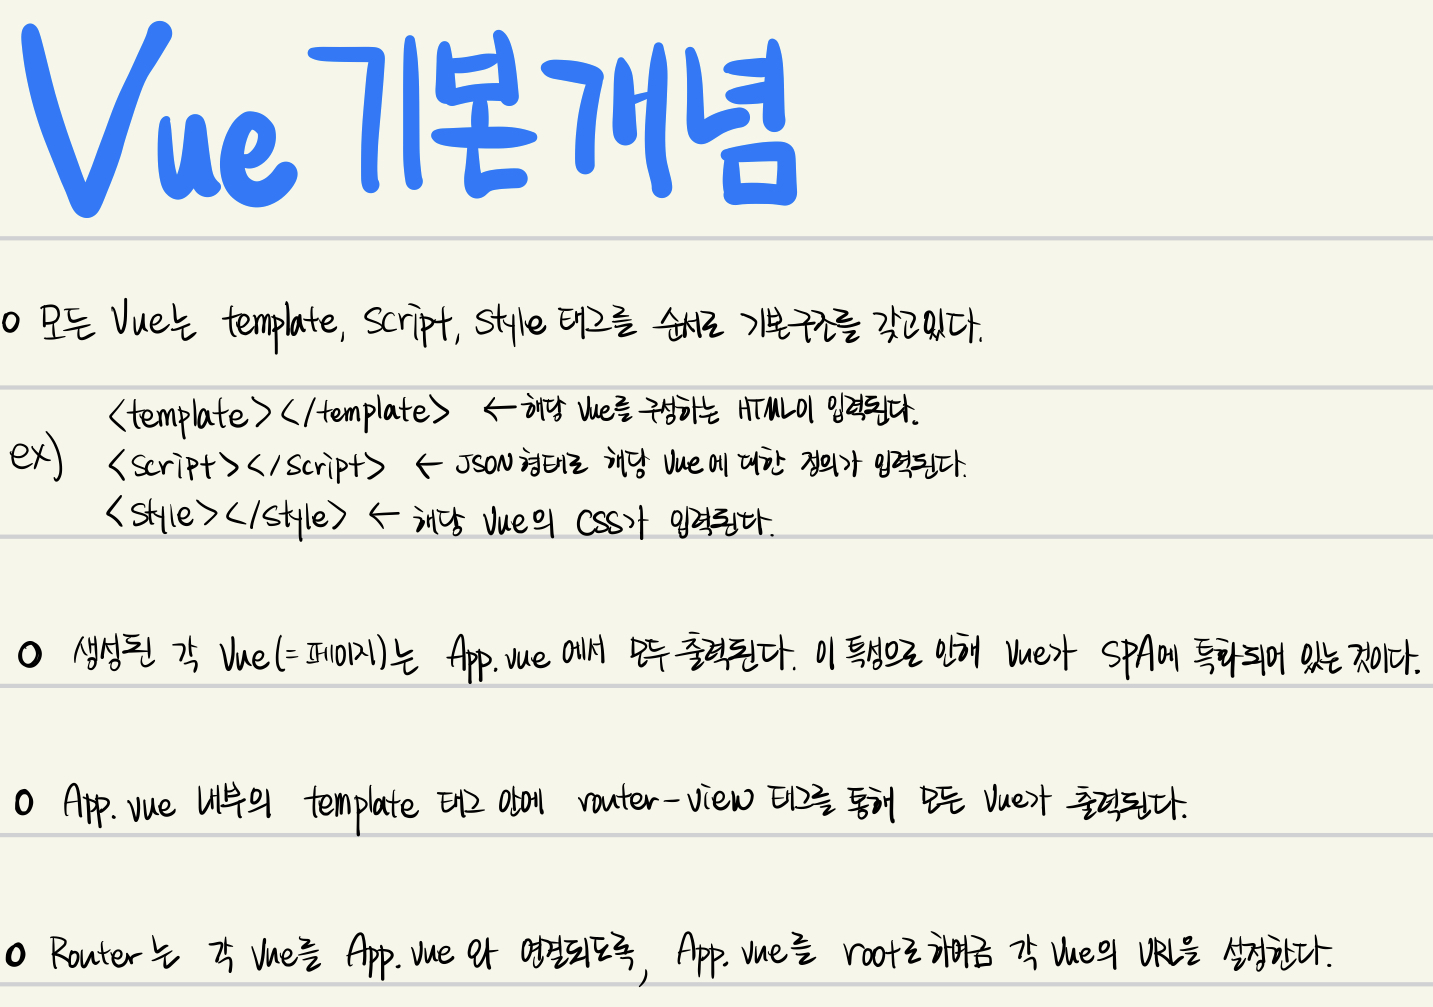 Vue 기본개념
o 모든 Vue는 template, script, style 태그를 순서로 기본구조를 갖고있다.
<template></template> ← 해당 Vue를 구성하는 HTML이 입력된다.
ex) <script></script> ← JSON 형태로 해당 Vue에 대한 정의가 입력된다.
<style></style> ← 해당 Vue의 CSS가 입력된다.
o 생성된 각 Vue(=페이지)는 App.vue에서 모두 출력된다. 이 특성으로 인해 Vue가 SPA에 특화되어 있는 것이다.
o App.vue 내부의 template 태그 안에 router-view 태그를 통해 모든 Vue가 출력된다.
o Router는 각 Vue를 App.vue와 연결되도록, App.vue를 root로 하여금 각 Vue의 URL을 설정한다.